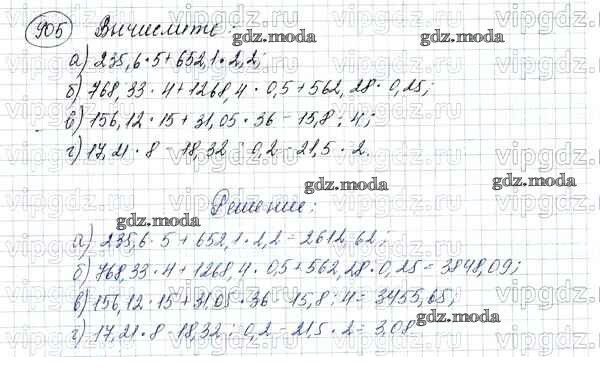 905 Вычислите:
gdz.moda
а) 235,6·5+652,1·2,2;
б) 768,33·4+1268,4·0,5+562,28·0,25;
в) 156,12·15+31,05·36-15,8:4;
г) 17,21·8-18,32:0,2-21,5·2.
gdz.moda
gdz.moda
Решение:
gdz.moda
а) 235,6·5+652,1·2,2=2612,62;
б) 768,33·4+1268,4·0,5+562,28·0,25=3848,09;
в) 156,12·15+31,05·36-15,8:4=3455,65;
г) 17,21·8-18,32:0,2-21,5·2=3,08
gdz.moda
vipgdz.ru